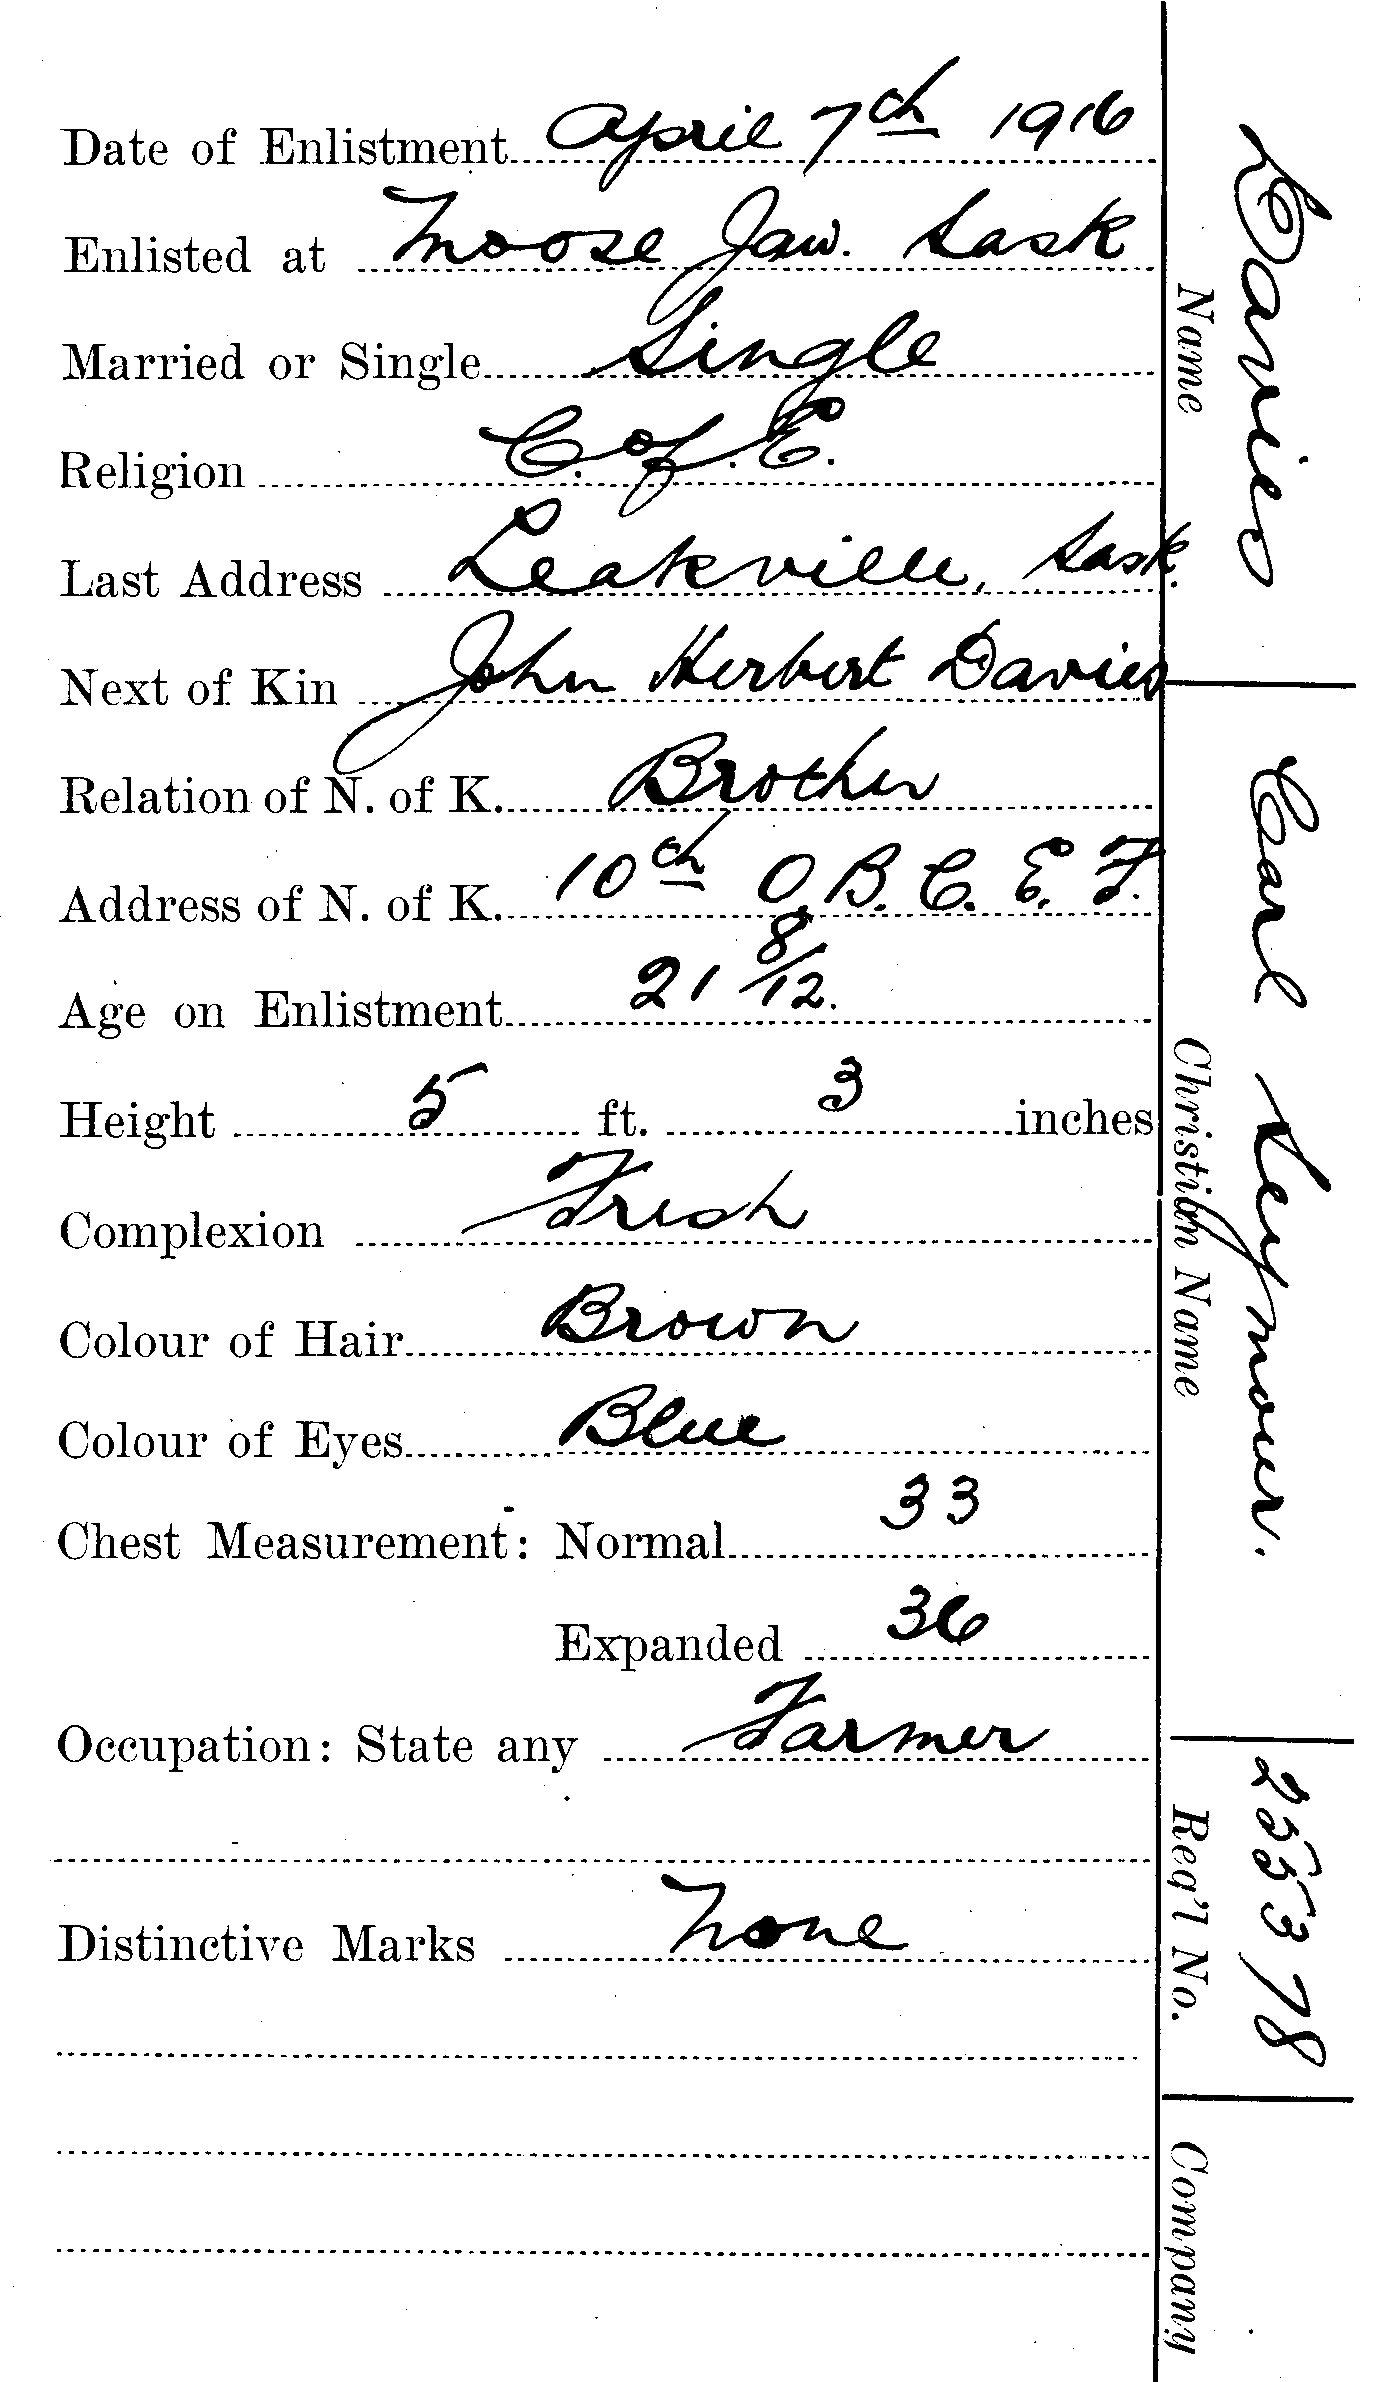 Date of Enlistment April 7th 1916
Enlisted at Moose Jaw. Sask
Married or Single Single
Religion C. of. E.
Last Address Leakville, Sask.
Next of Kin John Herbert Davies
Relation of N. of K. Brother
Address of N. of K. 10th O.B.C.E.F.
Age on Enlistment 21 8/12.
Height 5 ft. 3 inches
Complexion Fresh
Colour of Hair Brown
Colour of Eyes Blue
Chest Measurement: Normal 33
Expanded 36
Occupation: State any Farmer
Distinctive Marks None
Davies
Name
Carl Seymour.
Christian Name
255378
Reg'l No.
Company